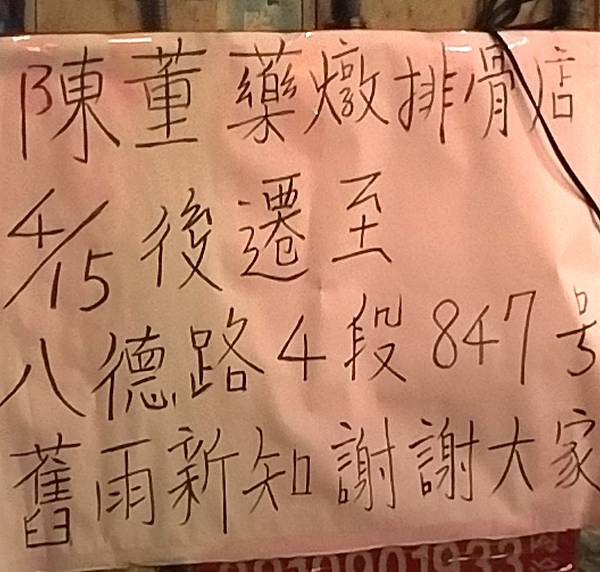 陳董藥燉排骨店
4/15後遷至
八德路4段847号
舊雨新知謝謝大家